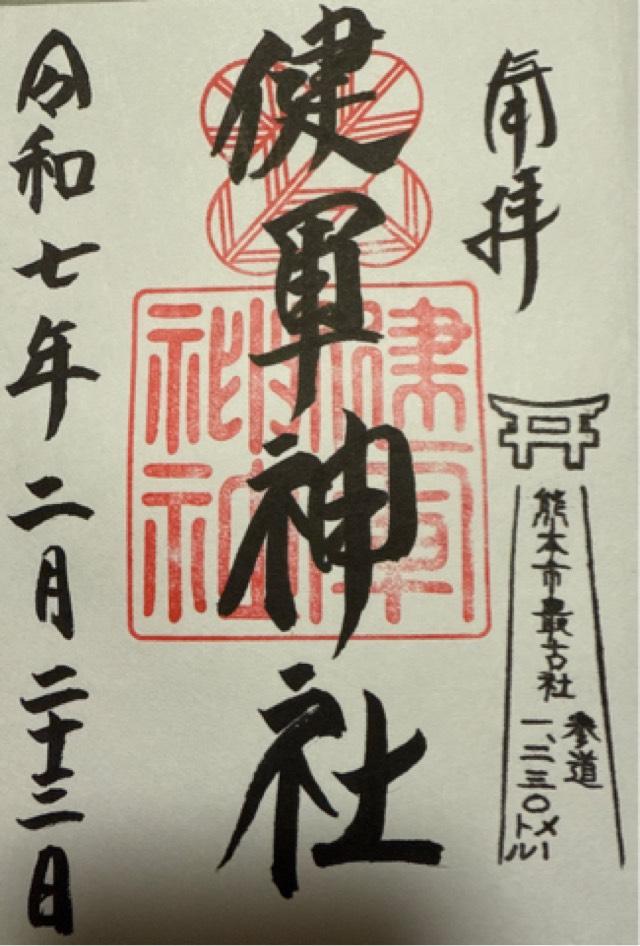 奉拝
熊本市最古社
参道
一、二三〇メートル
健軍神社
令和七年二月二十三日